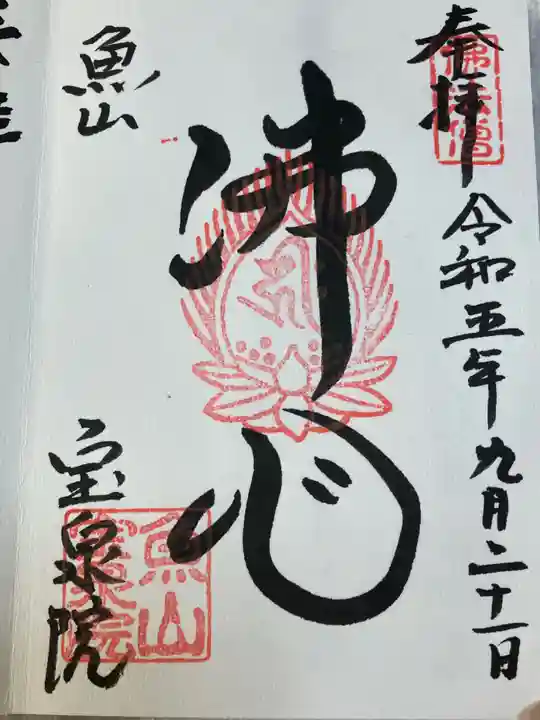 奉拝
令和五年九月二十一日
佛心
魚山
宝泉院
佛法僧
魚山
宝泉院